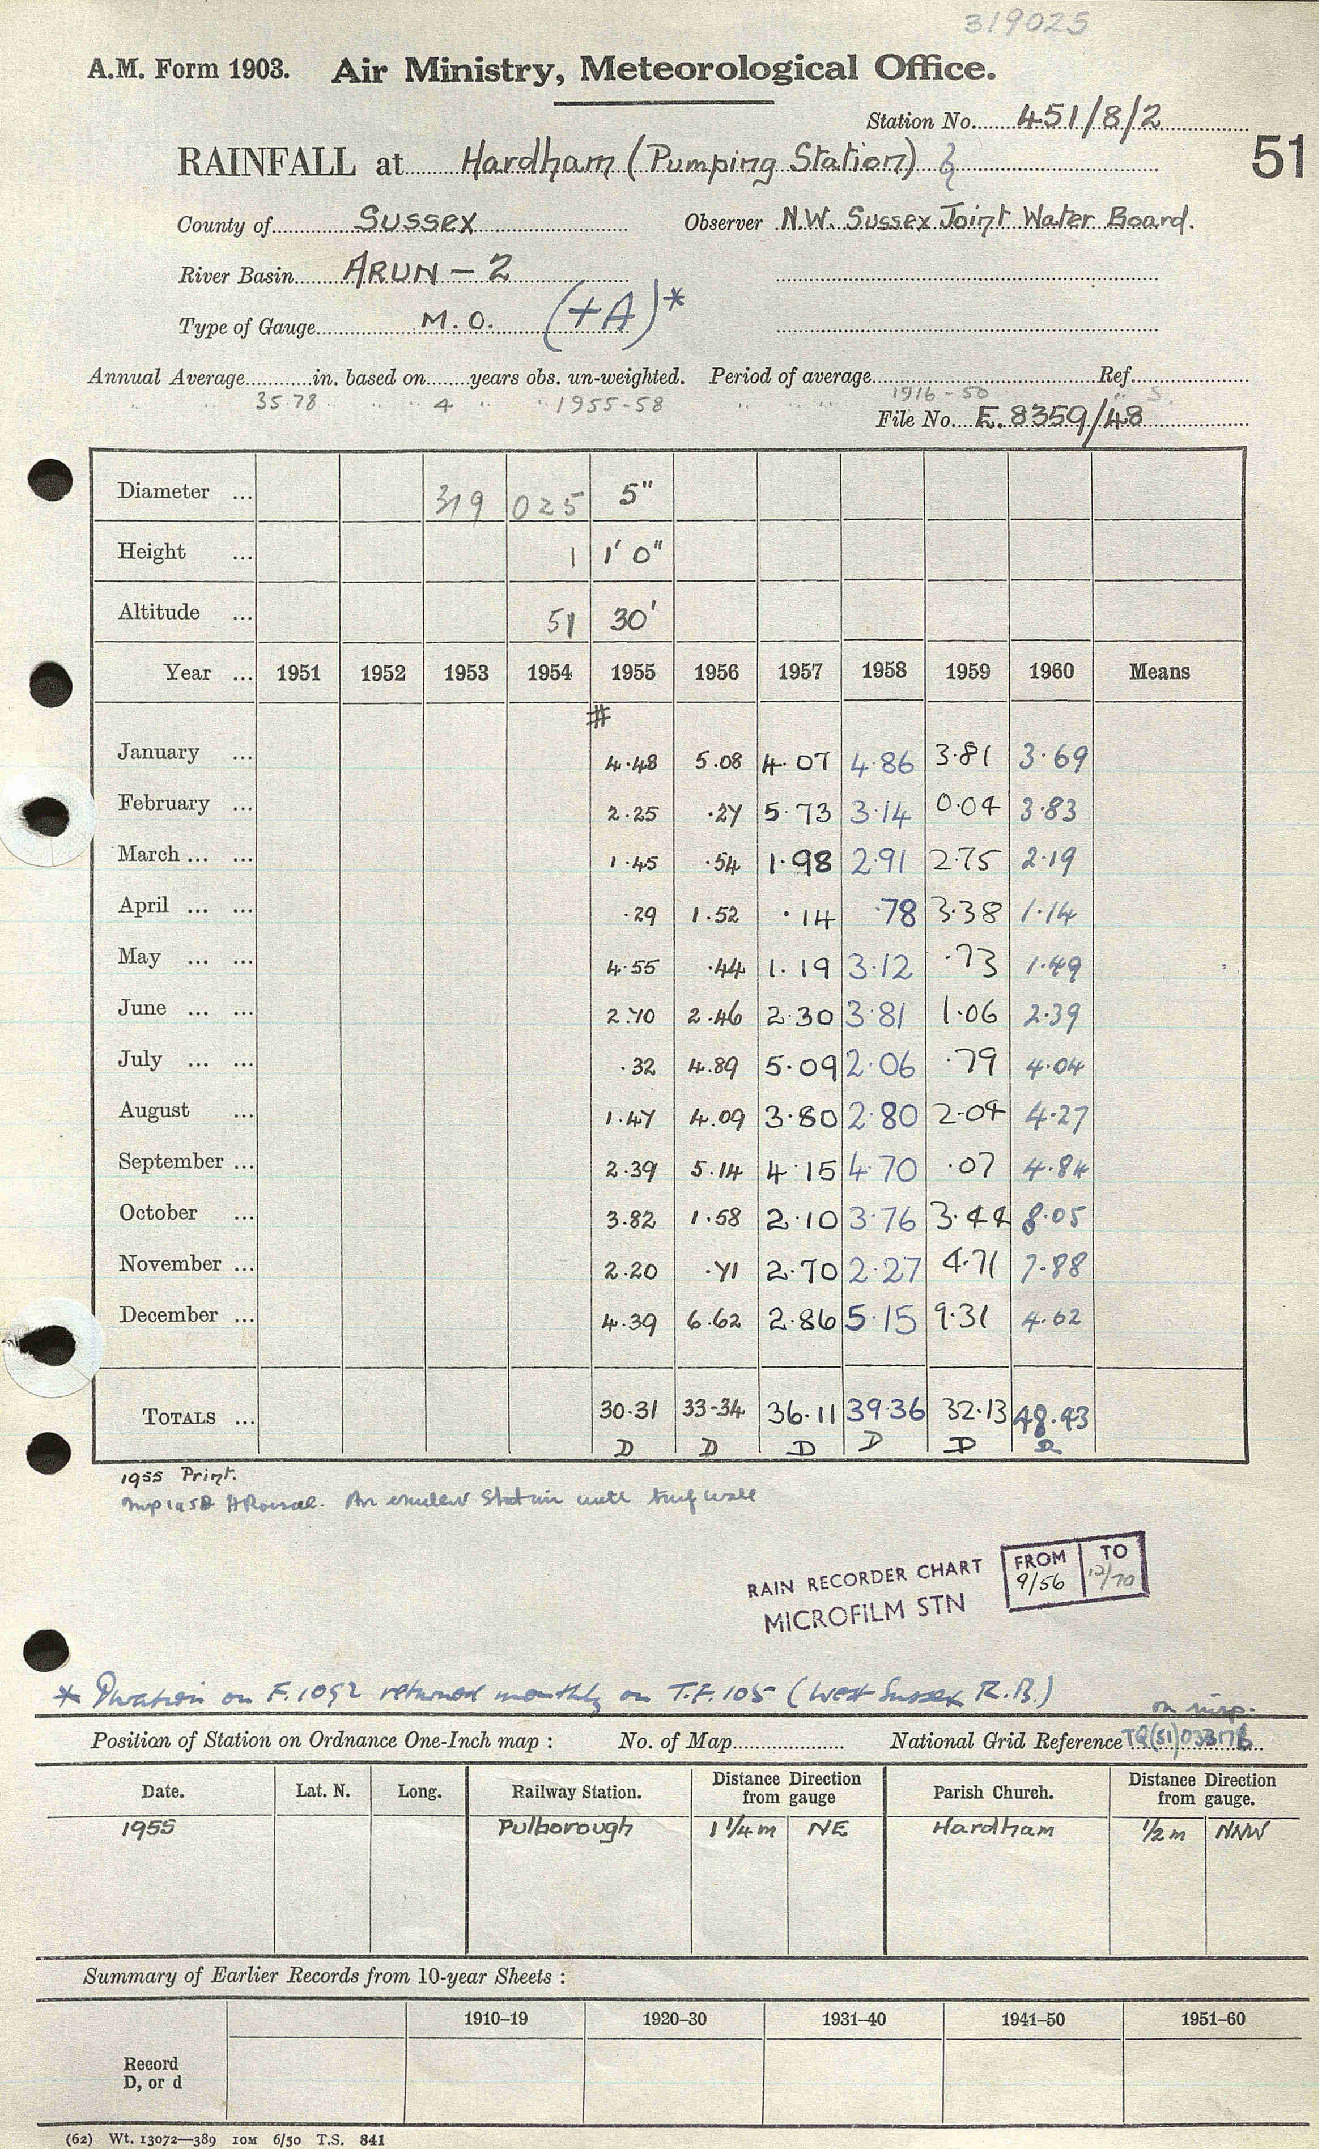 319025
A.M. Form 1903. Air Ministry, Meteorological Office.
Station No. 451/8/2
51
RAINFALL at Hardham (Pumping Station)
County of Sussex Observer N.W. Sussex Joint Water Board.
River Basin ARUN - 2
Type of Gauge M.O. (+A)*
Annual Average in. based on years obs. un-weighted. Period of average Ref.
35.78 4 1955-58 1916-50 S.
File No. E.8359/48
Diameter ... 319 025 5"
Height ... 1 1' 0"
Altitude ... 51 30'
Year ... 1951 1952 1953 1954 1955 1956 1957 1958 1959 1960 Means
#
January ... 4.48 5.08 4.07 4.86 3.81 3.69
February ... 2.25 .27 5.73 3.14 0.04 3.83
March ... ... 1.45 .54 1.98 2.91 2.75 2.19
April ... ... .29 1.52 .14 .78 3.38 1.14
May ... ... 4.55 .44 1.19 3.12 .73 1.49
June ... ... 2.70 2.46 2.30 3.81 1.06 2.39
July ... ... .32 4.89 5.09 2.06 .79 4.04
August ... 1.47 4.09 3.80 2.80 2.04 4.27
September ... 2.39 5.14 4.15 4.70 .07 4.84
October ... 3.82 1.58 2.10 3.76 3.44 8.05
November ... 2.20 .71 2.70 2.27 4.71 7.88
December ... 4.39 6.62 2.86 5.15 9.31 4.62
TOTALS ... 30.31 33.34 36.11 39.36 32.13 48.43
D D D D D D
1955 Print.
An station until turf wall
RAIN RECORDER CHART
MICROFILM STN
FROM TO
9/56 12/70
* Duration on F.1092 returned monthly on T.F. 105 (West Sussex R.B.)
on insp.
Position of Station on Ordnance One-Inch map : No. of Map National Grid Reference TQ(51)
Date. Lat. N. Long. Railway Station. Distance Direction from gauge Parish Church. Distance Direction from gauge.
1955 Pulborough 1 1/4 m NE Hardham 1/2 m NNW
Summary of Earlier Records from 10-year Sheets :
1910-19 1920-30 1931-40 1941-50 1951-60
Record
D, or d
(62) Wt. 13072—389 10M 6/50 T.S. 841